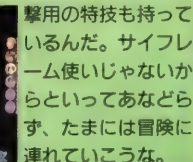 撃用の特技も持って
いるんだ。サイフレ
ーム使いじゃないか
らといってあなどら
ず、たまには冒険に
連れていこうな。